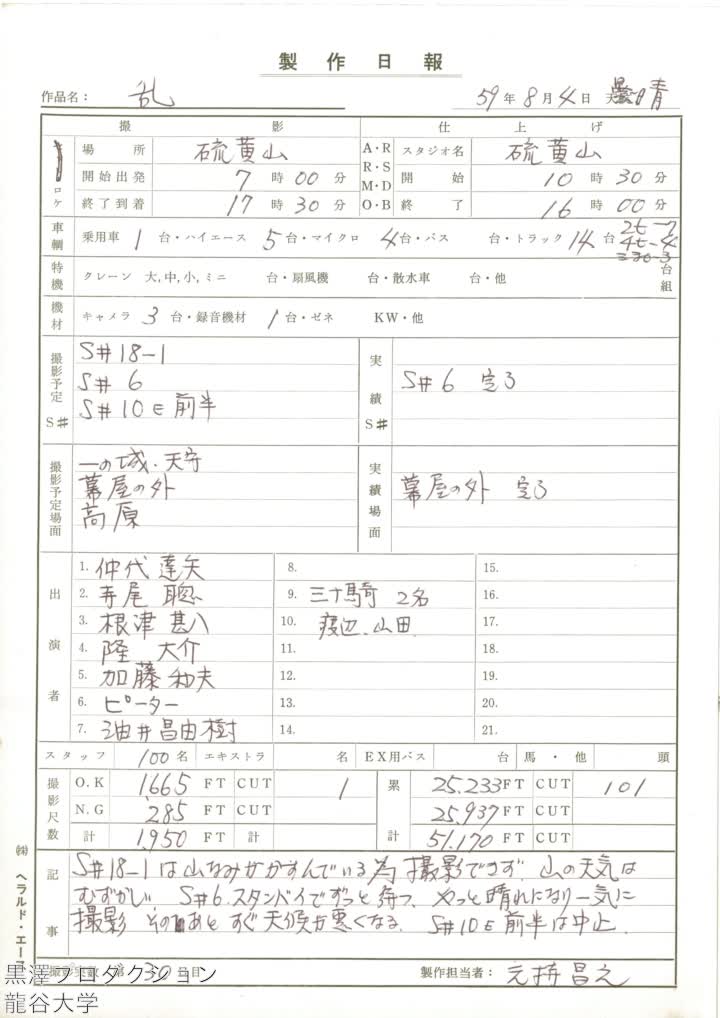 製作日報
作品名： 乱 59年8月4日 天 曇晴
撮影 仕上げ
ロケ 場所 硫黄山 A・R R・S M・D O・B スタジオ名 硫黄山
開始出発 7時00分 開始 10時30分
終了到着 17時30分 終了 16時00分
車輌 乗用車 1台・ハイエース 5台・マイクロ 4台・バス 台・トラック 14台 2t-7
4t-4
特機 クレーン 大,中,小,ミニ 台・扇風機 台・散水車 台・他 台組
機材 キャメラ 3台・録音機材 1台・ゼネ KW・他
撮影予定S# S#18-1 実績S#
S# 6 S# 6 定3
S# 10E 前半
撮影予定場面 一の城・天守 実績場面
幕屋の外 幕屋の外 定3
高原
出演者 1. 仲代達矢 8. 15.
2. 寺尾聰 9. 三十騎 2名 16.
3. 根津甚八 10. 渡辺、山田 17.
4. 隆大介 11. 18.
5. 加藤和夫 12. 19.
6. ピーター 13. 20.
7. 油井昌由樹 14. 21.
スタッフ 100名 エキストラ 名 EX用バス 台 馬・他 頭
撮影尺数 O.K 1,665 FT CUT 1 累計 25,233 FT CUT 101
N.G 285 FT CUT 25,937 FT CUT
計 1,950 FT 計 51,170 FT CUT
記事 S#18-1は山なみがかすんでいる為撮影できず、山の天気は
むずかしい S#6.スタンバイでずっと待つ、やっと晴れになり一気に
撮影 そのあとすぐ天候が悪くなる、S#10E前半は中止
撮影実数 第30日目 製作担当者： 元持昌之
㈱ヘラルド・エース
黒澤プロダクション
龍谷大学